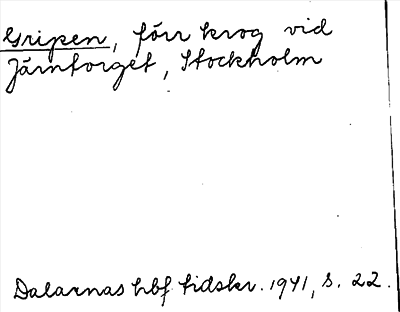 Gripen, förr krog vid
Järntorget, Stockholm
Dalarnas hbf tidskr. 1941, s. 22.